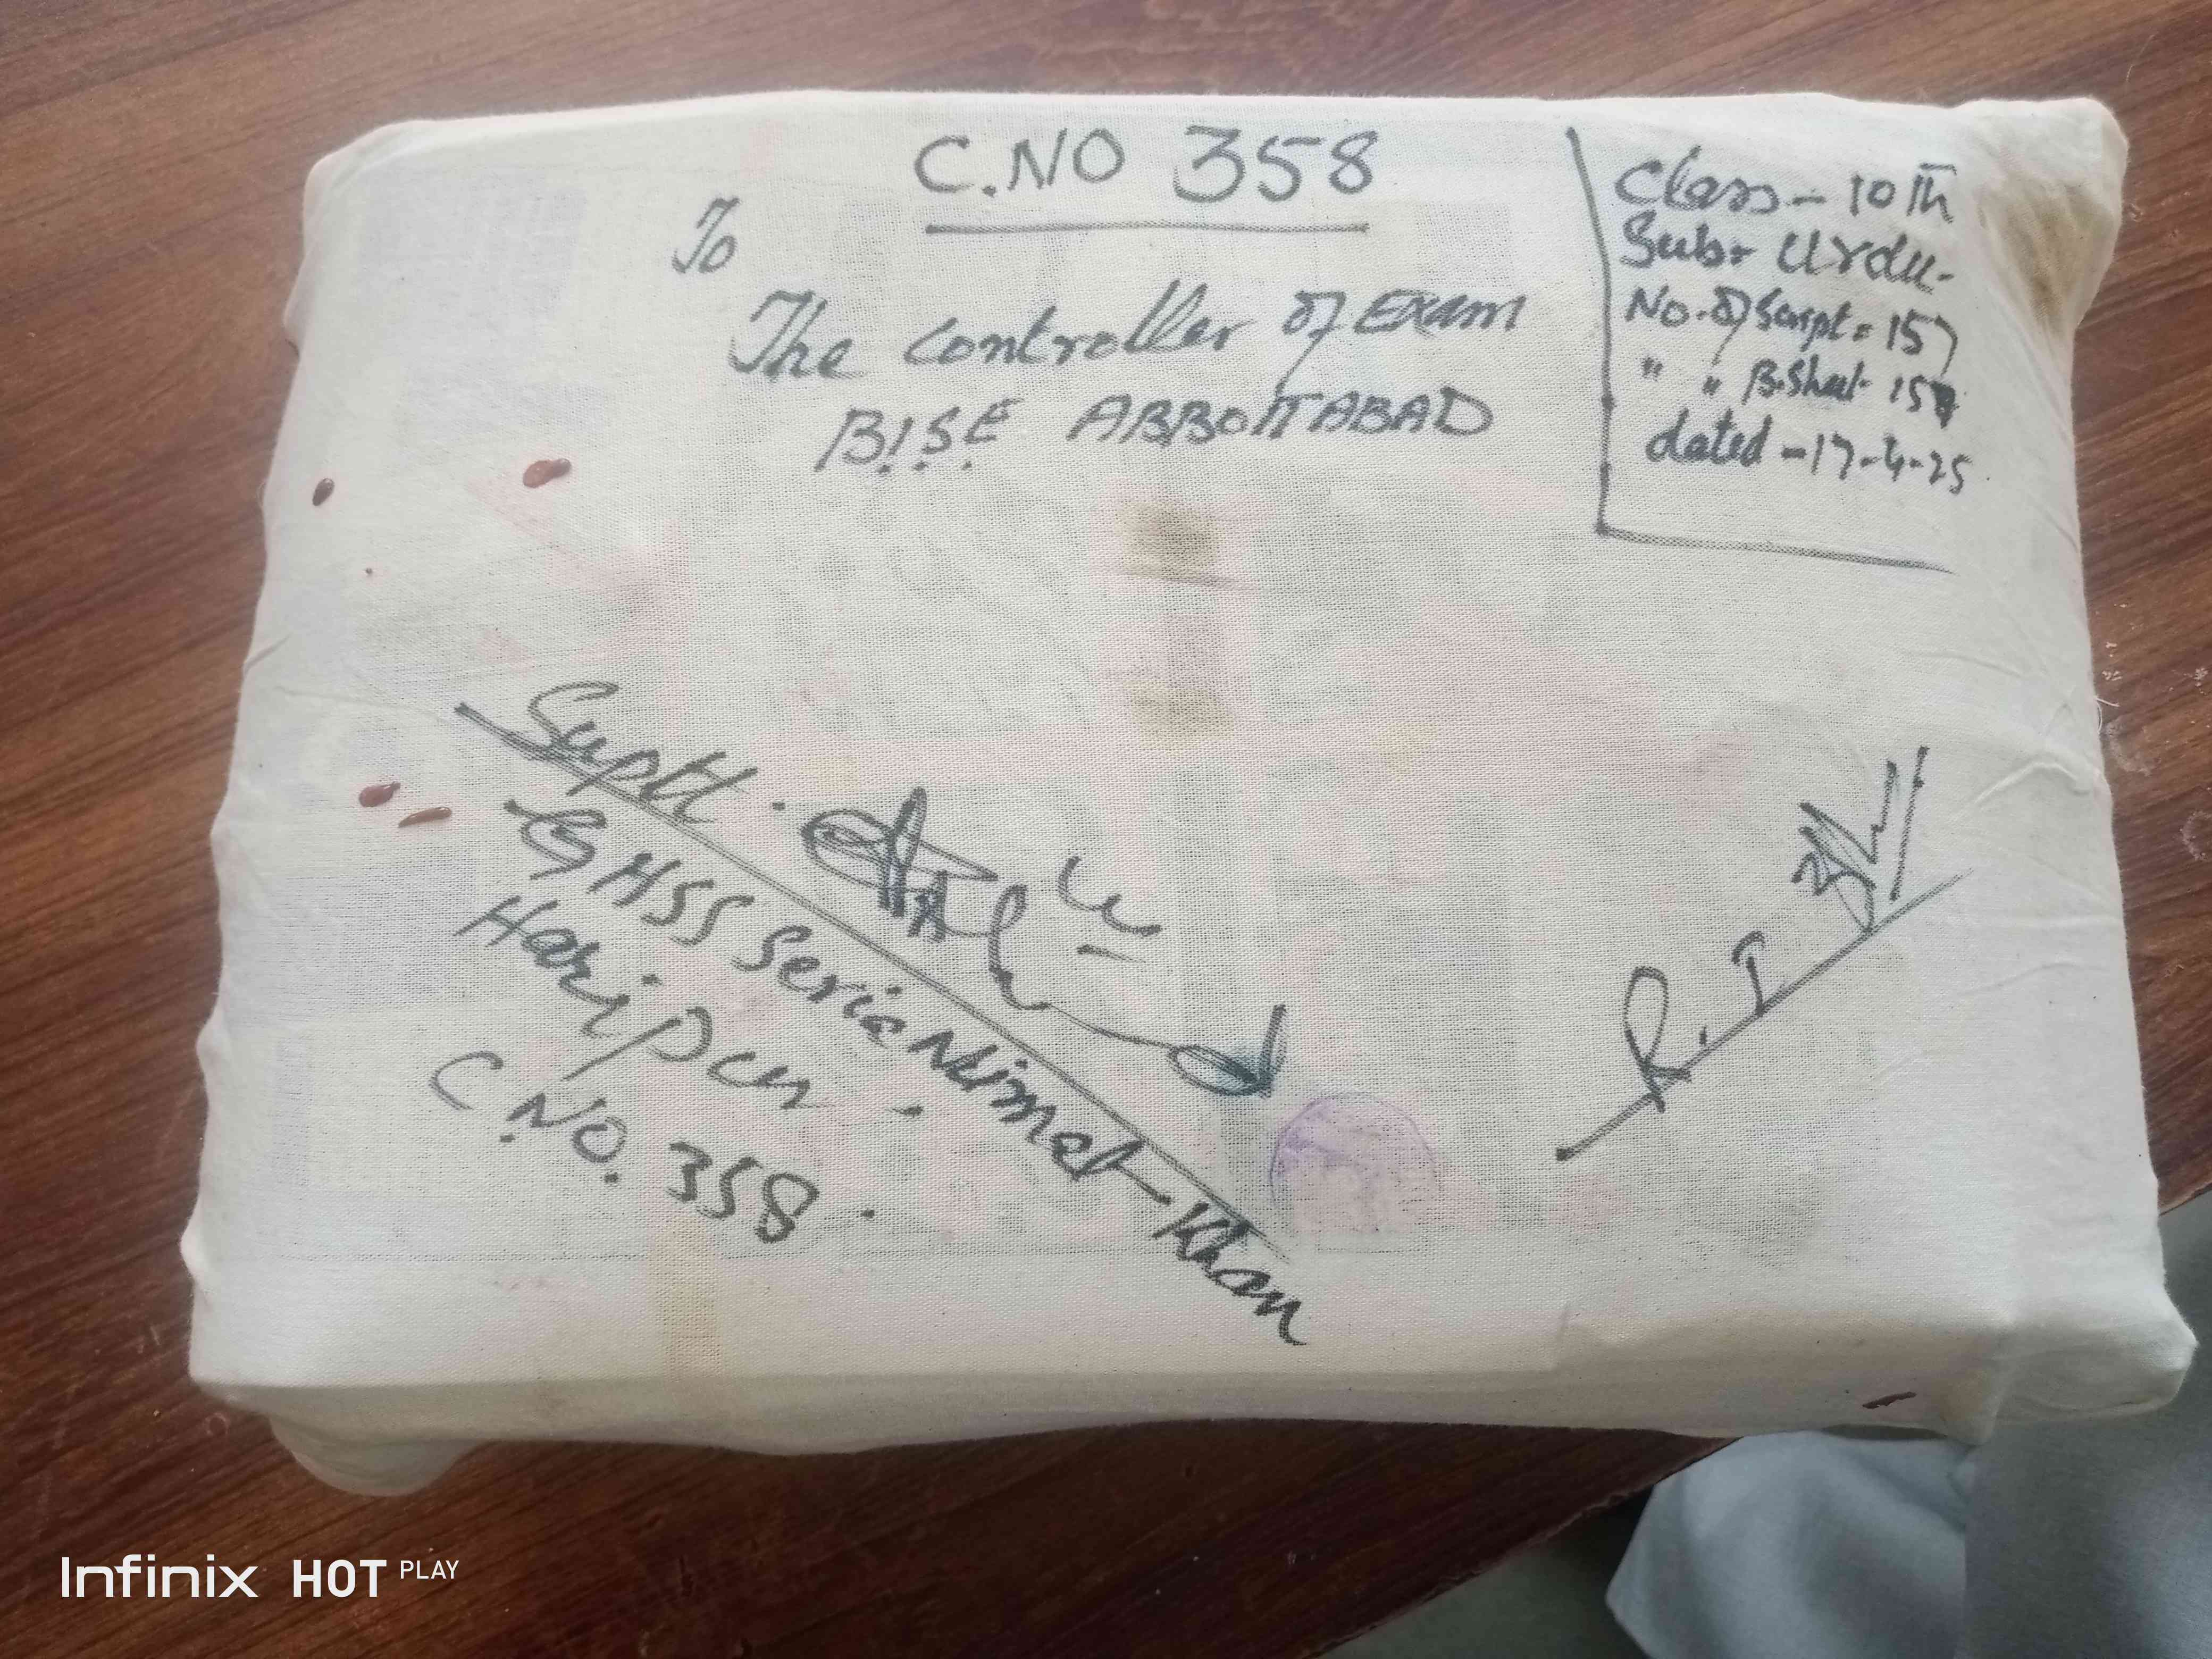 C.NO 358
To
The Controller of Exam
B.I.S.E ABBOTTABAD
Class - 10th
Sub = Urdu -
No. of Script = 157
" " B.Sheet - 157
dated - 17-4-25
Suptt.
GHSS Seria Nimat-Khan
Haripur.
C.NO. 358.
R.I
Infinix HOT PLAY